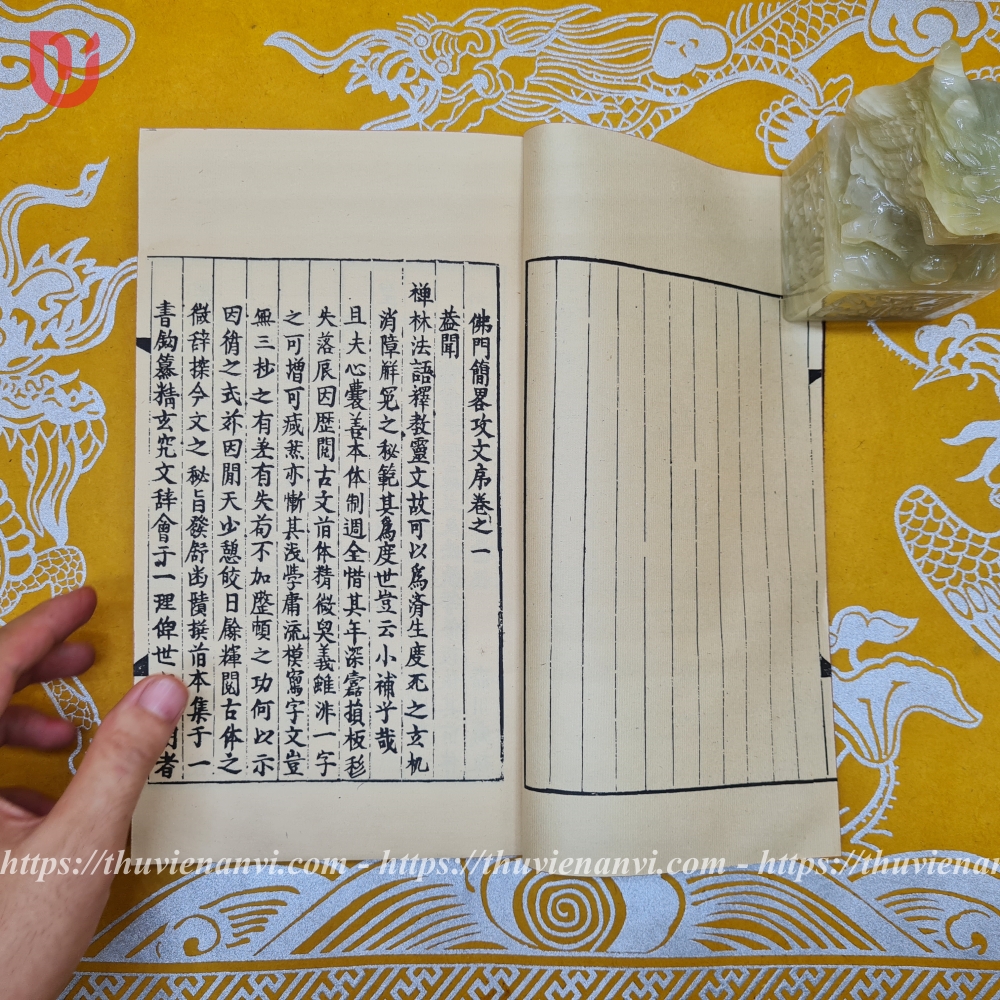 佛門簡畧攻文序卷之一
葢聞
禅林法語釋教靈文故可以爲済生度死之玄机
消障解冤之秘範其爲度世豈云小補乎哉
且夫心囊善本体制週全惜其年深蠹損板
失落辰因歷閲古文前体精微奥義雖非一字
之可增可减葢亦慚其浅學庸流模寫字文豈
無三抄之有差有失苟不加整頓之功何以示
因循之式茲因閒天少憩皎日餘輝閲古体之
微辞採今文之秘旨發舒幽賾撰前本集于一
書鈎纂精玄究文辞會于一理俾世 者
https://thuvienanvi.com - https://thuvienanvi.com - https://thuvienan